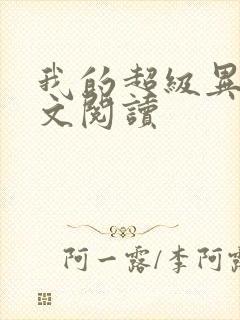 我的超級異
文閱讀
阿一露/李阿露